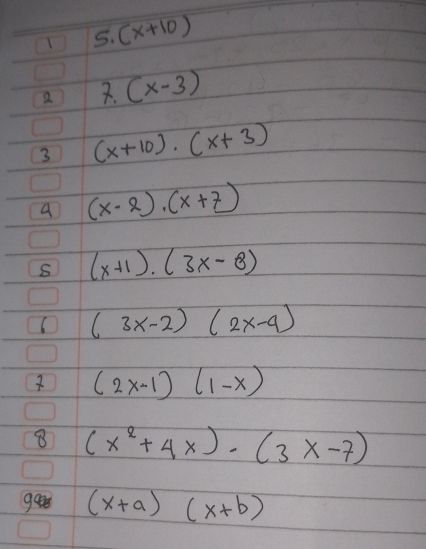 1 5.(x+10)
2 7.(x-3)
3 (x+10).(x+3)
4 (x-2).(x+7)
5 (x+1).(3x-8)
6 (3x-2) (2x-4)
7 (2x-1) (1-x)
8 (x²+4x)-(3x-7)
9 (x+a) (x+b)